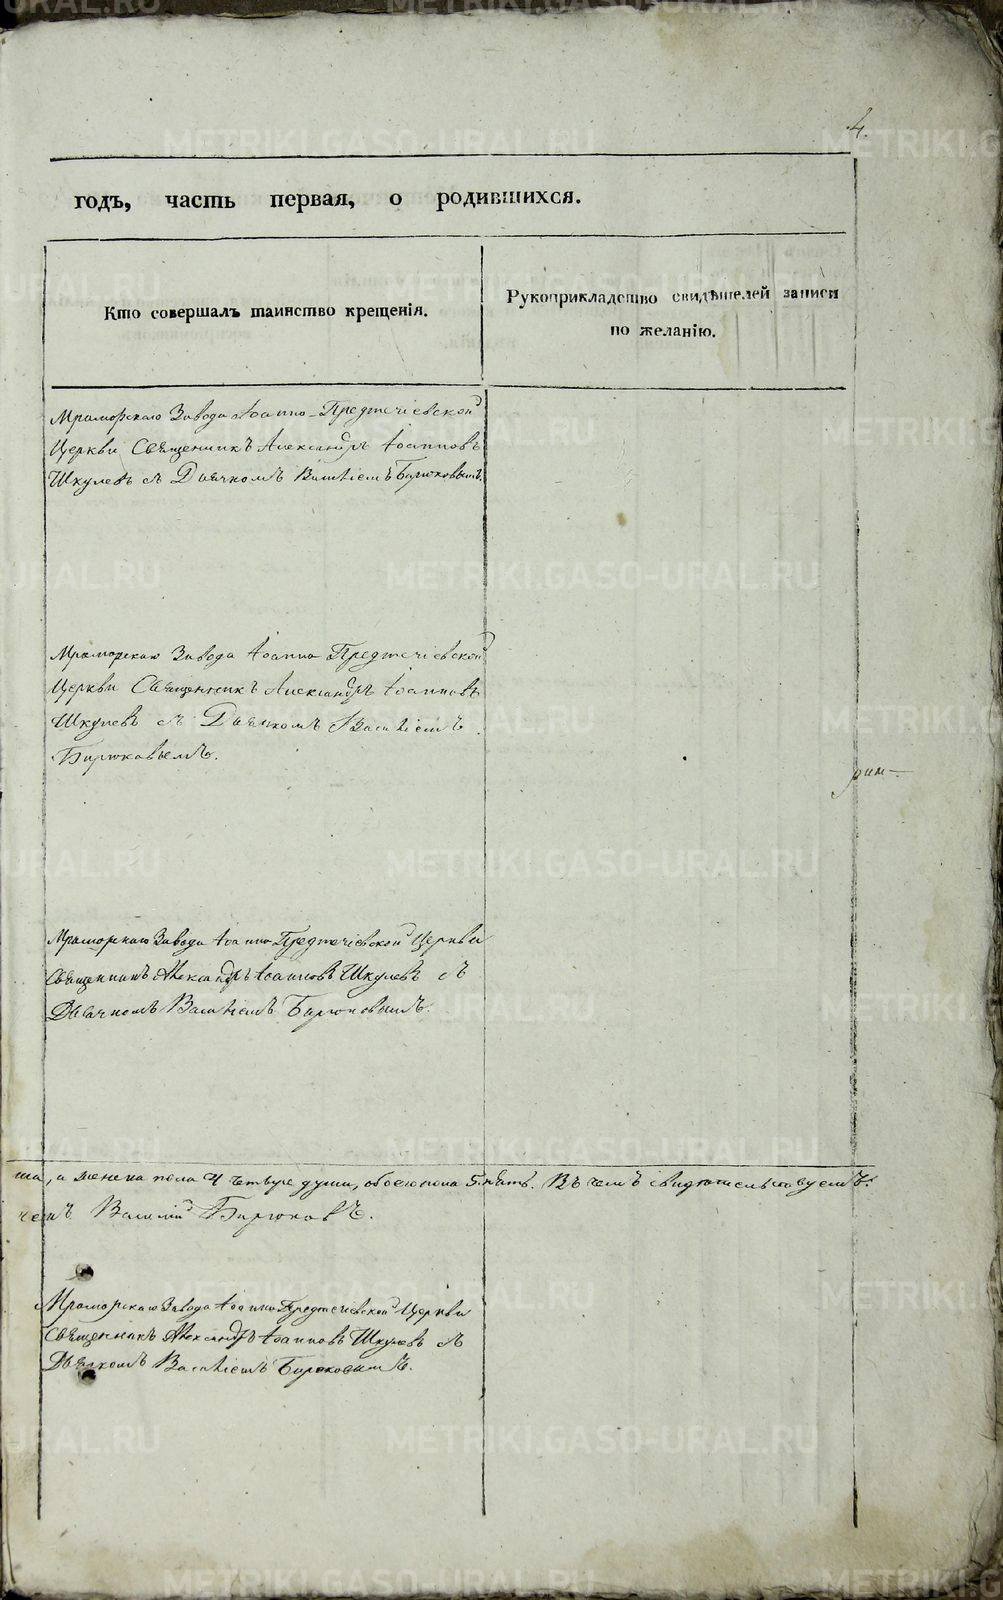 4.
годъ, часть первая, о родившихся.
Кто совершалъ таинство крещенія.
Рукоприкладство свидѣтелей записи
по желанію.
Мраморскаго Завода Іоанно-Предтечіевской
Церкви Священникъ Александръ Іоанновъ
Шкулевъ съ Дьячкомъ Василіемъ Бирюковымъ.
Мраморскаго Завода Іоанно Предтечіевской
Церкви Священникъ Александръ Іоанновъ
Шкулевъ съ Дьячкомъ Василіемъ
Бирюковымъ.
Мраморскаго Завода Іоанно Предтечіевской Церкви
Священникъ Александръ Іоанновъ Шкулевъ съ
Дьячкомъ Василіемъ Бирюковымъ.
, а женска пола 4 четыре души, обоего пола 5. пять. Въ чемъ свидѣтельствуемъ:
Василій Бирюковъ.
Мраморскаго Завода Іоанно Предтечіевской Церкви
Священникъ Александръ Іоанновъ Шкулевъ съ
Дьячкомъ Василіемъ Бирюковымъ.
METRIKI.GASO-URAL.RU